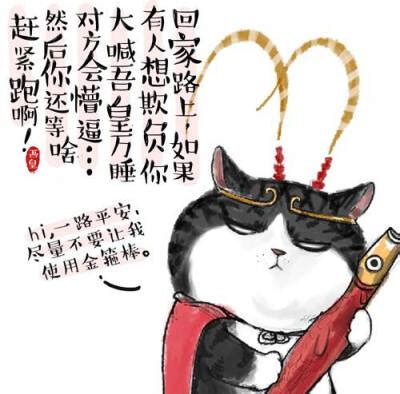 回家路上，如果
有人想欺负你
大喊吾皇万睡
对方会懵逼…
然后你还等啥
赶紧跑啊！
吾皇
hi，一路平安，
尽量不要让我
使用金箍棒。